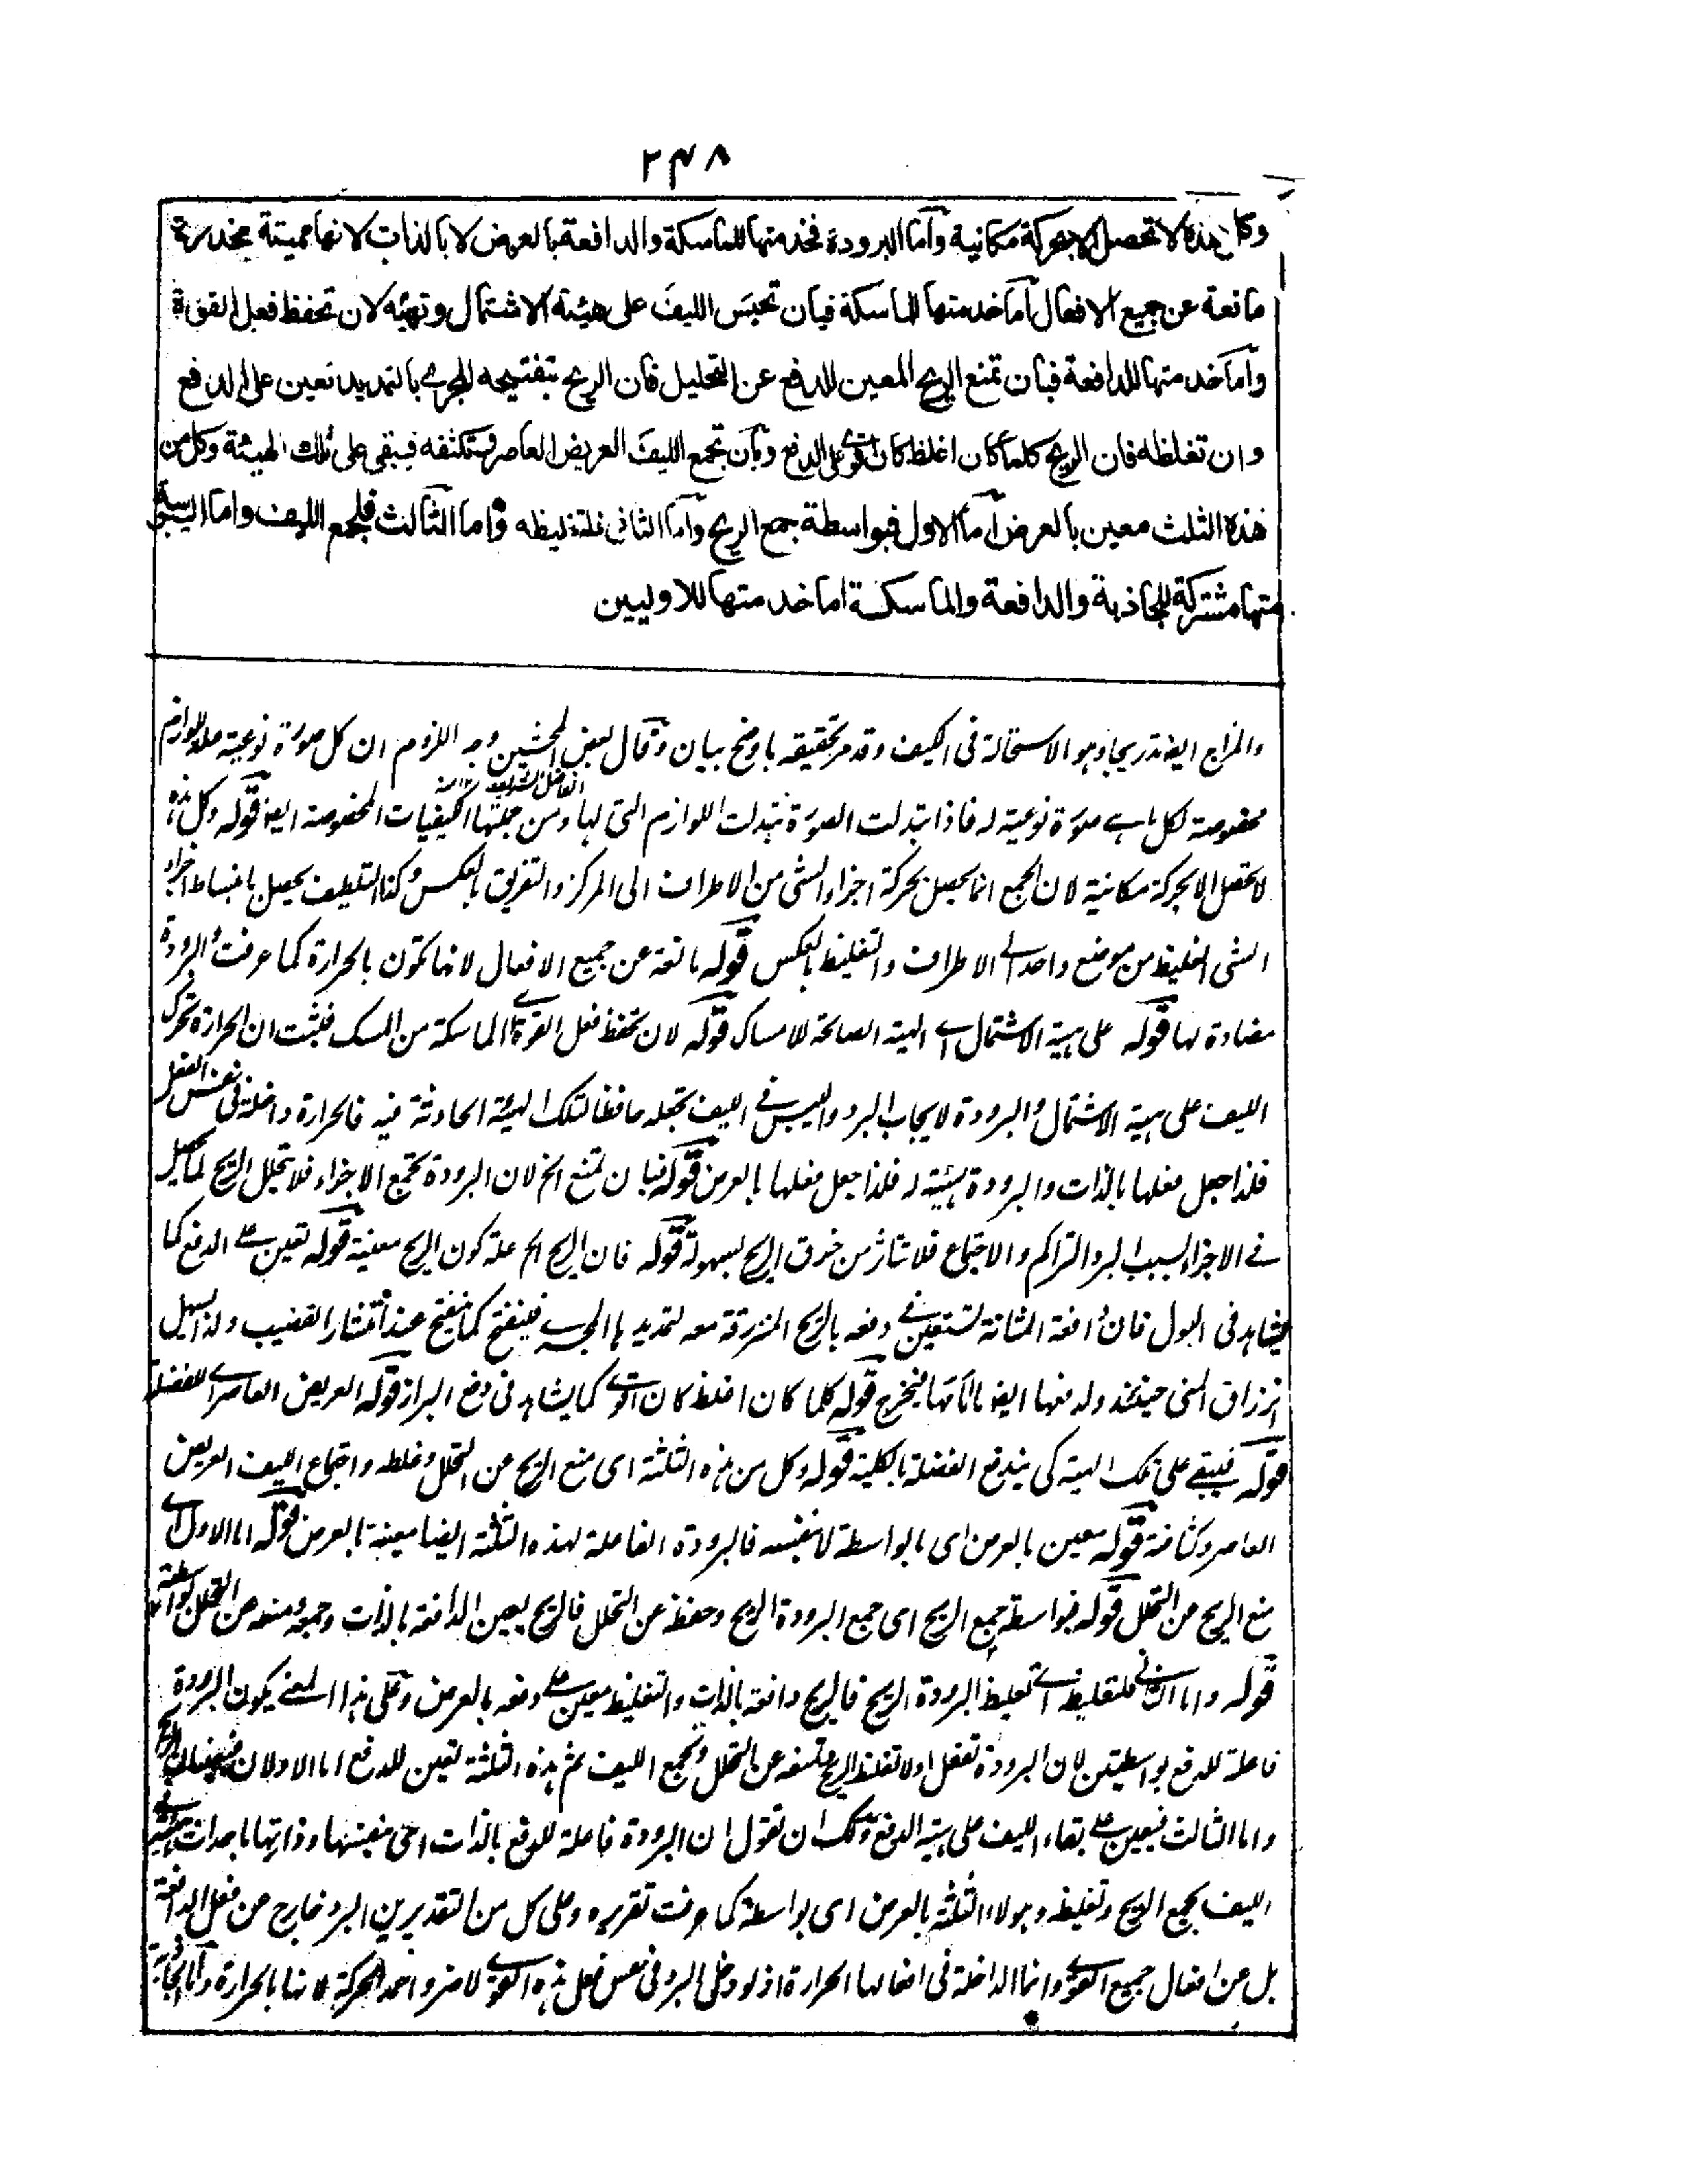 ۲۴۸
وكل هذه لا تحصل الا بحركة مكانية وأما البرودة فخدمتها للماسكة والدافعة بالعرض لا بالذات لانها مميتة مخدرة
مانعة عن جميع الافعال أما خدمتها للماسكة فبان تحبس الليف على هيئة الاشتمال وتهيئه لان تحفظ فعل القوة
وأما خدمتها للدافعة فبان تمنع الريح المعين للدفع عن التحليل فان الريح بتفتيحه المجرے بالتمديد تعين على الدفع
وان تغلظه فان الريح كلما كان اغلظ كان اقوے على الدفع وبأن تجمع الليف العريض العاصر وتكثفه فيبقى على تلك الهيئة وكل من
هذه الثلث معين بالعرض أما الاول فبواسطة جمع الريح وأما الثانى فلتغليظه وأما الثالث فلجمع الليف واما اليبوسة
متها مشتركة للجاذبة والدافعة والماسكة اما خدمتها للاوليين
والمزاج ايضا تدريجا وهو الاستحالة فى الكيف وقد مر تحقيقه باوضح بيان وقال بعض المحشين وجه اللزوم ان كل صورة نوعية لوازم
مخصوصة لكل صورة نوعية له فاذا تبدلت الصورة تبدلت اللوازم التى لها ومن جملتها الكيفيات المخصوصة ايضا قوله وكل هذه
لا تحصل الا بحركة مكانية لان الجمع انما يحصل بحركة اجزاء الشى من الاطراف الى المركز والتفريق بالعكس وكذا التلطيف يحصل بانبساط اجزاء
الشى الغليظ من موضع واحد الے الاطراف والتغليظ بالعكس قوله مانعة عن جميع الافعال لانها تكون بالحرارة كما عرفت والبرودة
مضادة لها قوله على هيئة الاشتمال اے الهيئة الصالحة للامساك قوله لان تحفظ فعل القوة اے الماسكة من المسك فثبت ان الحرارة تحرك
الليف على هيئة الاشتمال والبرودة لايجاب البرد واليبس فے الليف تجعله حافظا لتلك الهيئة الحادثة فيه فالحرارة داخلة فى نفس الفعل
فلذا جعل فعلها بالذات والبرودة مهيئة له فلذا جعل فعلها بالعرض قوله فبان تمنع الخ لان البرودة تجمع الاجزاء فلا تحلل الريح لما يحصل
فے الاجزاء بسبب البرد التراكم والاجتماع فلا تتأثر من خرق الريح بسهولة قوله فان الريح الخ علة كون الريح معينة قوله تعين علے الدفع كما
يشاهد فى البول فان دافعة المثانة تستعين فے دفعه بالريح المنزرقة معه لتمديدها المجرے فينفتح كما ينفتح عند انتشار القضيب ولذا يسهل
انزراق المنى حينئذ قوله كلما كان اغلظ كان اقوے كما يشاهد فى دفع البراز قوله العريض العاصر اے للفضلة
قوله فيبقے على تلك الهيئة كى يندفع الفضلة بالكلية قوله وكل من هذه الثلثة اى منع الريح من التحلل وغلظه واجتماع الليف العريض
العاصر وكثافته قوله معين بالعرض اى بالواسطة لا بنفسه فالبرودة الفاعلة لهذه الثلثة ايضا معينة بالعرض قوله اما الاول اے
منع الريح من التحلل قوله فبواسطة جمع الريح اى جمع البرودة الريح وحفظه عن التحلل فالريح يعين الدافعة بالذات وجمعه ومنعه من التحلل بواسطته
قوله واما الثانے فلتغليظه اے تغليظ البرودة الريح فالريح دافعة بالذات والتغليظ معين علے دفعه بالعرض وعلى هذا المعنے يكون البرودة
فاعلة للدفع بواسطتين لان البرودة تفعل اولا تغليظ الريح ومنعه عن التحلل وتجمع الليف ثم هذه الثلثة تعين للدفع اما الاولان
واما الثالث فيعين علے بقاء الليف على هيئة الدفع ولك ان تقول ان البرودة فاعلة للدفع بالذات اى بنفسها وذاتها باحداث
الليف بجمع الريح وتغليظه وهولاء الثلثة بالعرض اى بواسطة كما عرفت تقريره وعلى كل من التقديرين البرد خارج من فعل الدافعة
بل عن افعال جميع القوے وانما الداخلة فى افعالها الحرارة اذ لو دخل البرد فى نفس فعل هذه القوے لاضر واخمد الحركة لانها بالحرارة